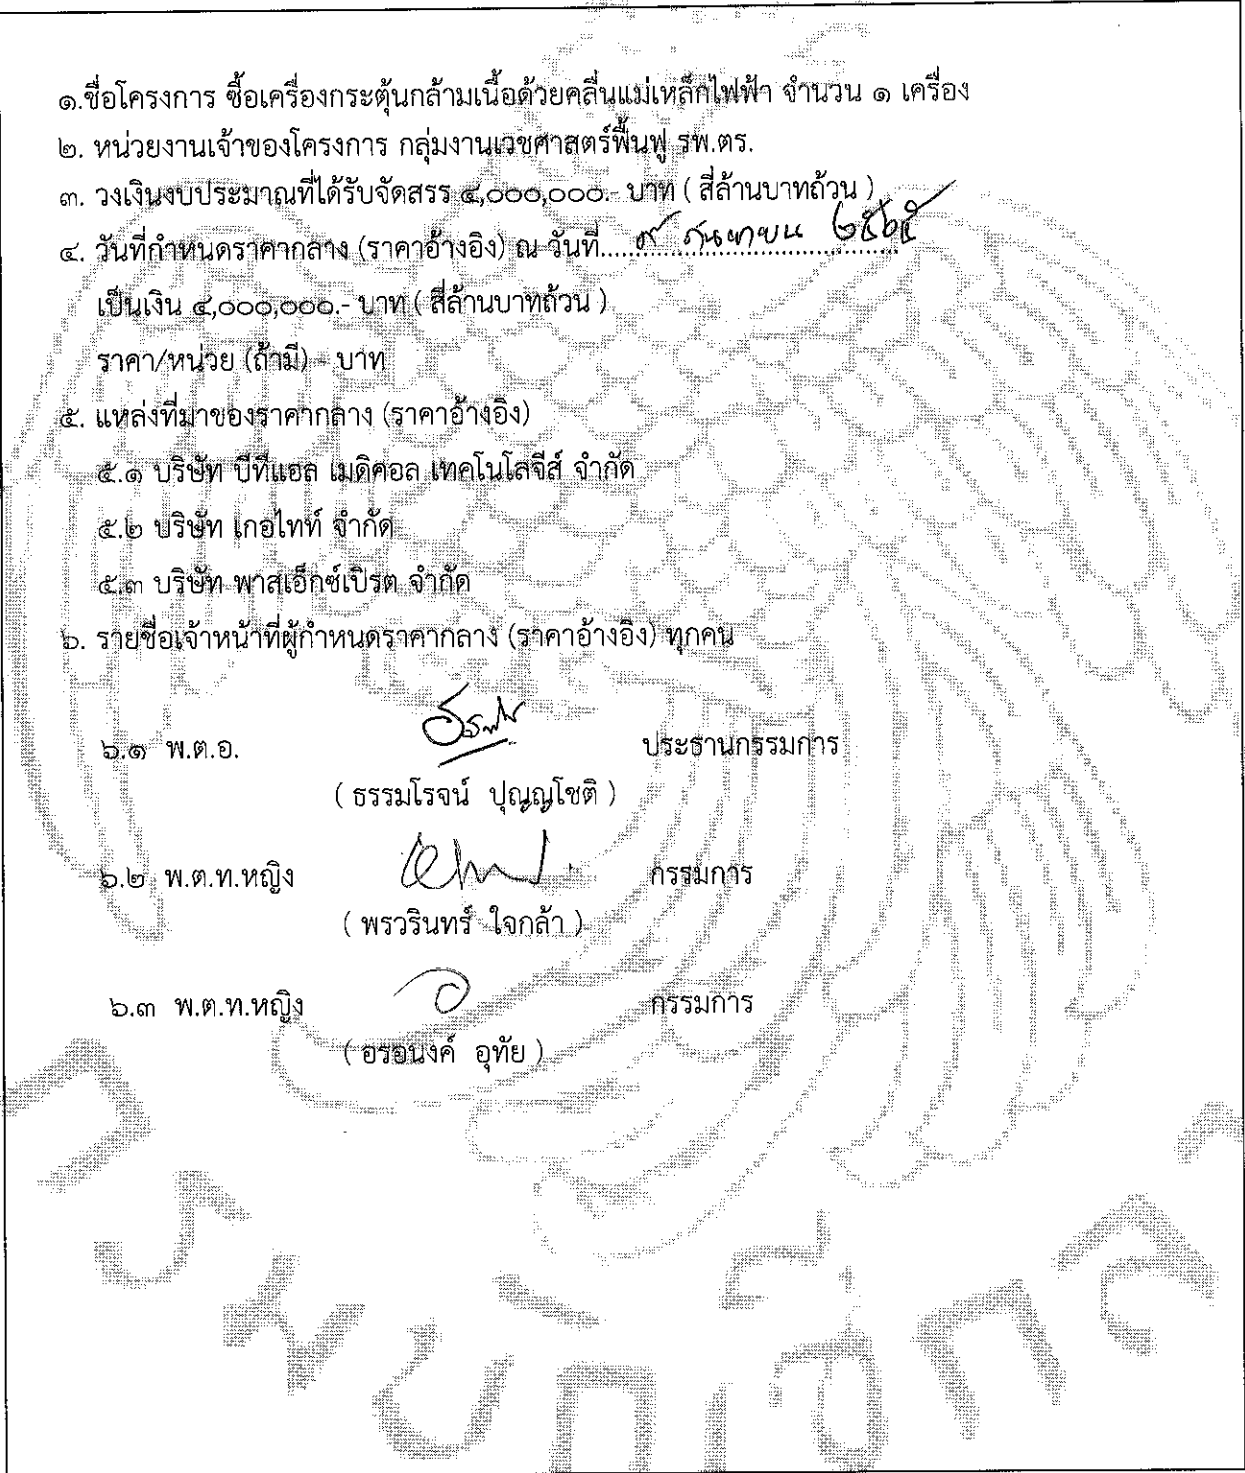 ๑.ชื่อโครงการ ซื้อเครื่องกระตุ้นกล้ามเนื้อด้วยคลื่นแม่เหล็กไฟฟ้า จำนวน ๑ เครื่อง
๒. หน่วยงานเจ้าของโครงการ กลุ่มงานเวชศาสตร์ฟื้นฟู รพ.ตร.
๓. วงเงินงบประมาณที่ได้รับจัดสรร ๔,๐๐๐,๐๐๐.- บาท ( สี่ล้านบาทถ้วน )
๔. วันที่กำหนดราคากลาง (ราคาอ้างอิง) ณ วันที่ ๙ กันยายน ๒๕๖๕
เป็นเงิน ๔,๐๐๐,๐๐๐.- บาท ( สี่ล้านบาทถ้วน )
ราคา/หน่วย (ถ้ามี) - บาท
๕. แหล่งที่มาของราคากลาง (ราคาอ้างอิง)
๕.๑ บริษัท บีทีแอล เมดิคอล เทคโนโลจีส์ จำกัด
๕.๒ บริษัท เกอไทท์ จำกัด
๕.๓ บริษัท พาสเอ็กซ์เปิรต จำกัด
๖. รายชื่อเจ้าหน้าที่ผู้กำหนดราคากลาง (ราคาอ้างอิง) ทุกคน
๖.๑ พ.ต.อ. ประธานกรรมการ
( ธรรมโรจน์ ปุญญโชติ )
๖.๒ พ.ต.ท.หญิง กรรมการ
( พรวรินทร์ ใจกล้า )
๖.๓ พ.ต.ท.หญิง กรรมการ
( อรอนงค์ อุทัย )